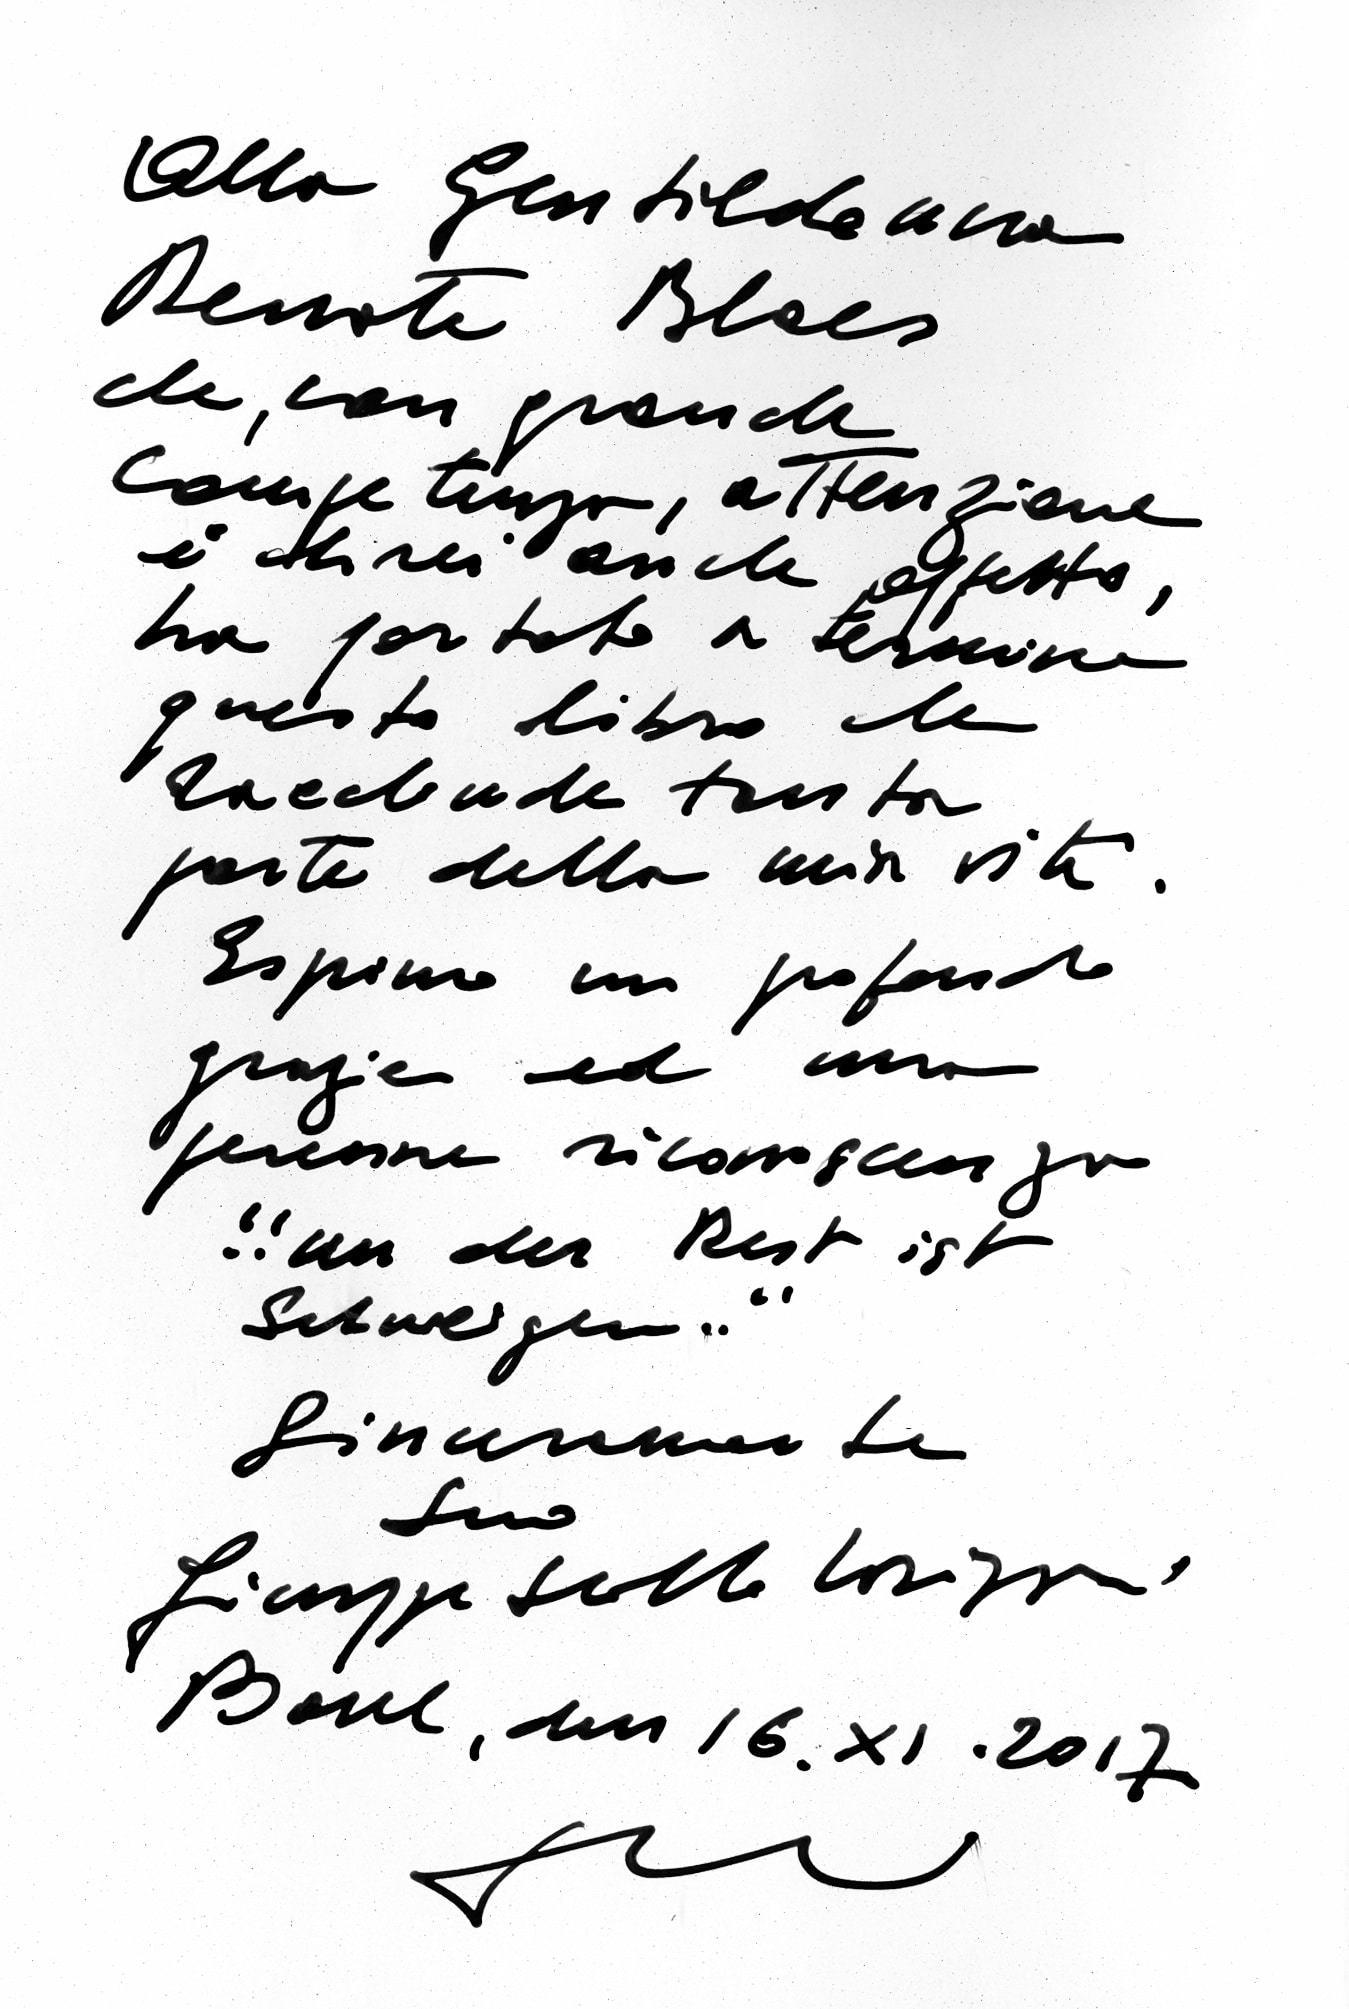 Alla Gentildonna
Renate Blaes
che, con grande
competenza, attenzione
e direi anche affetto,
ha portato a termine
questo libro che
racchiude tanta
parte della mia vita.
Esprimo un profondo
grazie ed una
perenne riconoscenza
"... der Rest ist
Schweigen.."
Sinceramente
Suo
Giuseppe
Basel, den 16.XI.2017